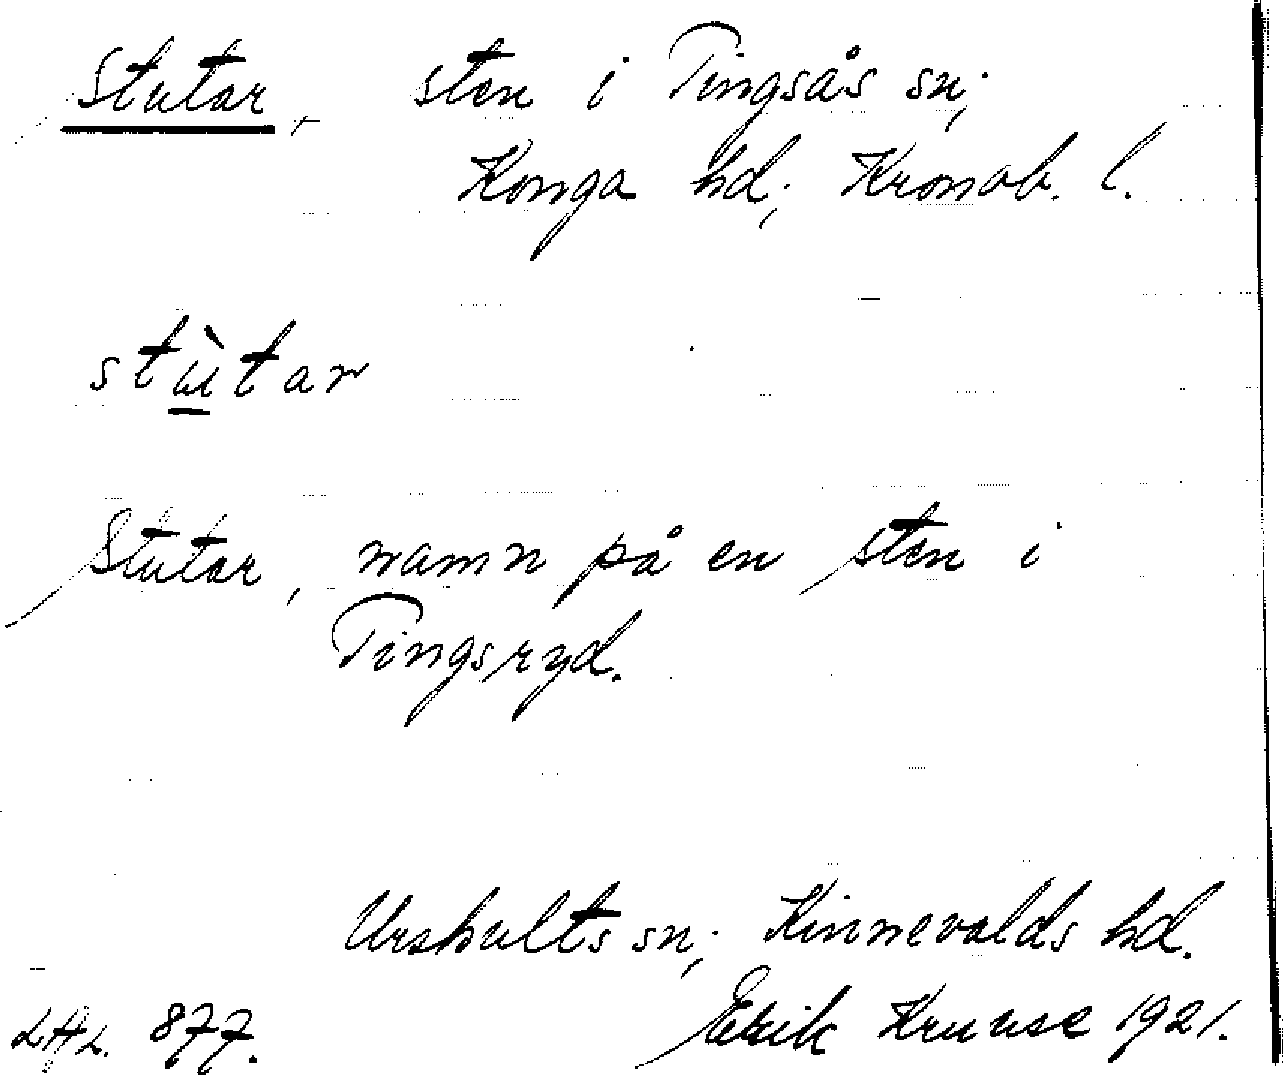 Stutar, sten i Tingsås sn;
Konga hd; Kronob. l.
stùtar
Stutar, namn på en sten i
Tingsryd.
Urshults sn; Kinnevalds hd.
LAL. 877. Erik Kruuse 1921.